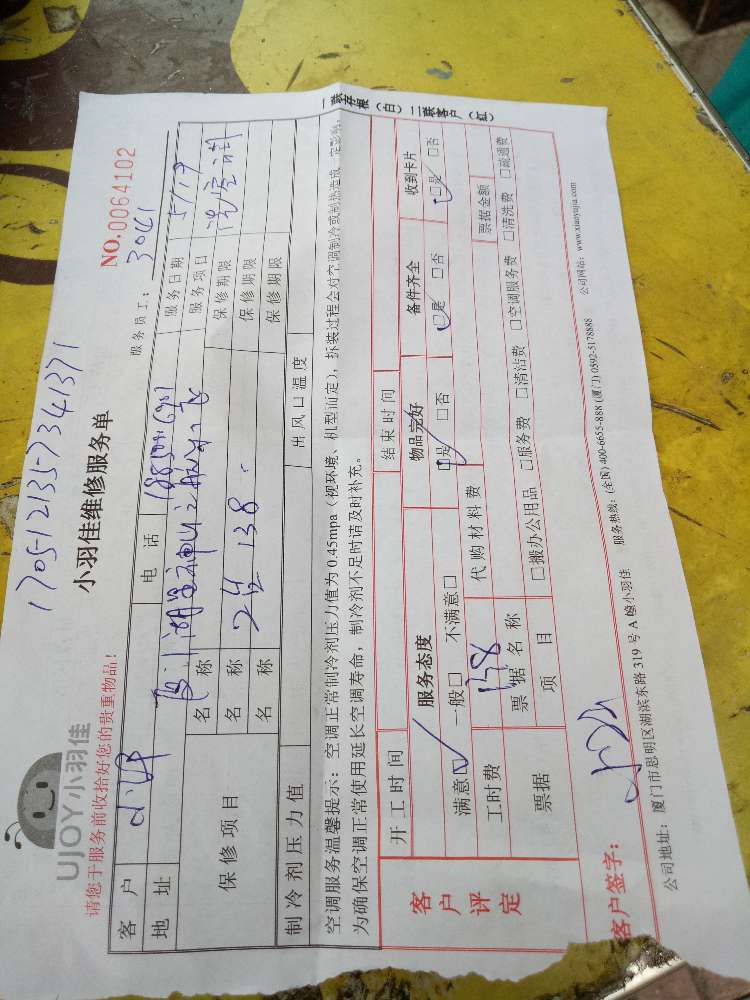 1705-12135-7341371
UJOY小羽佳
小羽佳维修服务单
NO.0064102
请您于服务前收拾好您的贵重物品!
服务员工: 3041
客户
电话
服务日期 5/19
地址
服务项目 洗空调
保修项目
名称 2台 138
保修期限
名称
保修期限
名称
保修期限
制冷剂压力值
出风口温度
空调服务温馨提示:空调正常制冷剂压力值为0.45mpa(视环境、机型而定),拆装过程会对空调制冷或制热造成一定影响,
为确保空调正常使用延长空调寿命,制冷剂不足时请及时补充。
开工时间
结束时间
客户评定
服务态度
物品完好
备件齐全
收到卡片
满意☑ 一般□ 不满意□
☑是 □否
☑是 □否
☑是 □否
工时费 138
代购材料费
票据
票据名称
票据金额
项目
□搬办公用品 □服务费 □清洁费 □空调服务费 □清洗费 □疏通费
客户签字:
公司地址:厦门市思明区湖滨东路319号A幢小羽佳
服务热线:(全国)400-6655-888 (厦门)0592-5178888
公司网站:www.xiaoyujia.com
一联存根(白)二联客户(红)